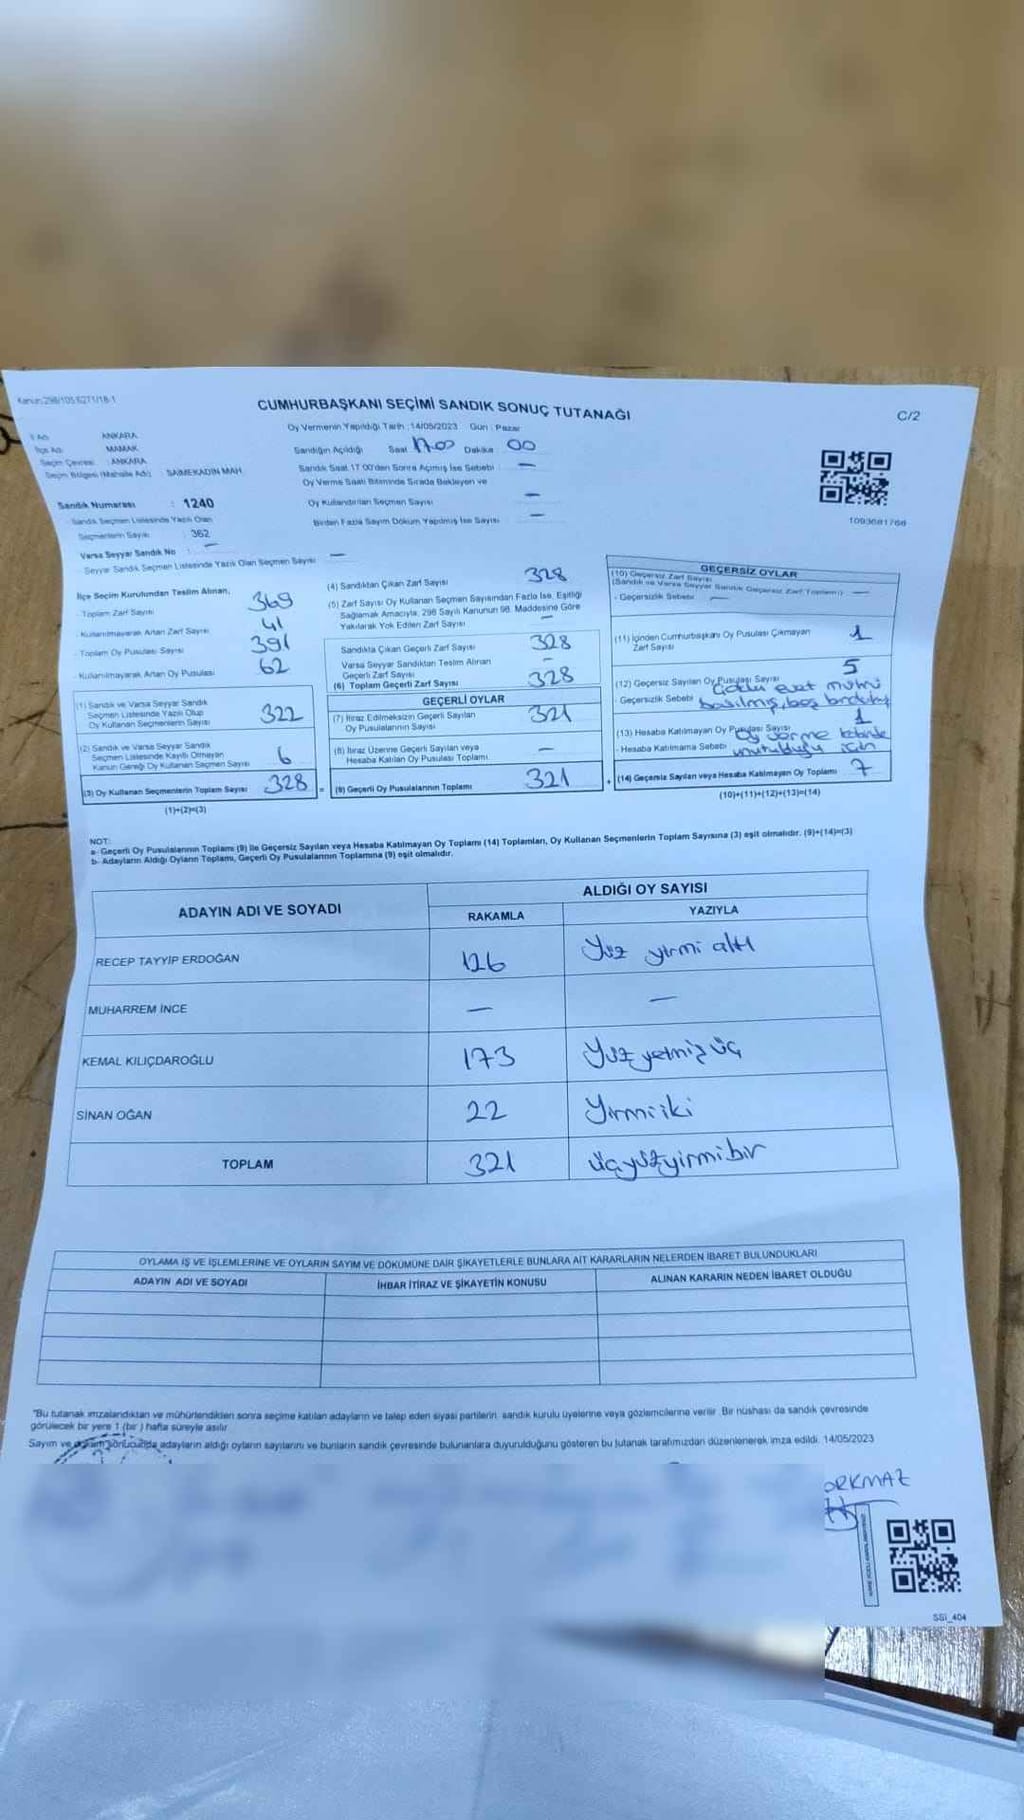 Kanun:298/105;6271/18-1
CUMHURBAŞKANI SEÇİMİ SANDIK SONUÇ TUTANAĞI
C/2
Oy Vermenin Yapıldığı Tarih : 14/05/2023 Gün : Pazar
İl Adı : ANKARA
İlçe Adı : MAMAK
Seçim Çevresi : ANKARA
Seçim Bölgesi (Mahalle Adı) : SAİMEKADIN MAH.
Sandığın Açıldığı Saat 17.00 Dakika 00
Sandık Saat 17:00'den Sonra Açılmış İse Sebebi —
Oy Verme Saati Bitiminde Sırada Bekleyen ve
Oy Kullandırılan Seçmen Sayısı —
Birden Fazla Sayım Döküm Yapılmış İse Sayısı —
1093681766
Sandık Numarası : 1240
Sandık Seçmen Listesinde Yazılı Olan
Seçmenlerin Sayısı : 362
Varsa Seyyar Sandık No : —
- Seyyar Sandık Seçmen Listesinde Yazılı Olan Seçmen Sayısı —
İlçe Seçim Kurulundan Teslim Alınan,
- Toplam Zarf Sayısı 369
- Kullanılmayarak Artan Zarf Sayısı 41
- Toplam Oy Pusulası Sayısı 391
- Kullanılmayarak Artan Oy Pusulası 62
(1) Sandık ve Varsa Seyyar Sandık
Seçmen Listesinde Yazılı Olup
Oy Kullanan Seçmenlerin Sayısı 322
(2) Sandık ve Varsa Seyyar Sandık
Seçmen Listesinde Kayıtlı Olmayan
Kanun Gereği Oy Kullanan Seçmen Sayısı 6
(3) Oy Kullanan Seçmenlerin Toplam Sayısı 328 =
(1)+(2)=(3)
(4) Sandıktan Çıkan Zarf Sayısı 328
(5) Zarf Sayısı Oy Kullanan Seçmen Sayısından Fazla İse, Eşitliği
Sağlamak Amacıyla; 298 Sayılı Kanunun 98. Maddesine Göre
Yakılarak Yok Edilen Zarf Sayısı —
Sandıkta Çıkan Geçerli Zarf Sayısı 328
Varsa Seyyar Sandıktan Teslim Alınan
Geçerli Zarf Sayısı —
(6) Toplam Geçerli Zarf Sayısı 328
GEÇERLİ OYLAR
(7) İtiraz Edilmeksizin Geçerli Sayılan
Oy Pusulalarının Sayısı 321
(8) İtiraz Üzerine Geçerli Sayılan veya
Hesaba Katılan Oy Pusulası Toplamı —
(9) Geçerli Oy Pusulalarının Toplamı 321 +
GEÇERSİZ OYLAR
(10) Geçersiz Zarf Sayısı
(Sandık ve Varsa Seyyar Sandık Geçersiz Zarf Toplamı) —
- Geçersizlik Sebebi —
(11) İçinden Cumhurbaşkanı Oy Pusulası Çıkmayan
Zarf Sayısı 1
(12) Geçersiz Sayılan Oy Pusulası Sayısı 5
- Geçersizlik Sebebi evet mührü
basılmış, boş
(13) Hesaba Katılmayan Oy Pusulası Sayısı 1
- Hesaba Katılmama Sebebi Oy verme
unutulduğu için
(14) Geçersiz Sayılan veya Hesaba Katılmayan Oy Toplamı 7
(10)+(11)+(12)+(13)=(14)
NOT:
a- Geçerli Oy Pusulalarının Toplamı (9) ile Geçersiz Sayılan veya Hesaba Katılmayan Oy Toplamı (14) Toplamları, Oy Kullanan Seçmenlerin Toplam Sayısına (3) eşit olmalıdır. (9)+(14)=(3)
b- Adayların Aldığı Oyların Toplamı, Geçerli Oy Pusulalarının Toplamına (9) eşit olmalıdır.
ADAYIN ADI VE SOYADI
ALDIĞI OY SAYISI
RAKAMLA YAZIYLA
RECEP TAYYİP ERDOĞAN 126 Yüz yirmi altı
MUHARREM İNCE — —
KEMAL KILIÇDAROĞLU 173 Yüz yetmiş üç
SİNAN OĞAN 22 Yirmiiki
TOPLAM 321 üçyüzyirmibir
OYLAMA İŞ VE İŞLEMLERİNE VE OYLARIN SAYIM VE DÖKÜMÜNE DAİR ŞİKAYETLERLE BUNLARA AİT KARARLARIN NELERDEN İBARET BULUNDUKLARI
ADAYIN ADI VE SOYADI İHBAR İTİRAZ VE ŞİKAYETİN KONUSU ALINAN KARARIN NEDEN İBARET OLDUĞU
"Bu tutanak imzalandıktan ve mühürlendikten sonra seçime katılan adayların ve talep eden siyasi partilerin, sandık kurulu üyelerine veya gözlemcilerine verilir. Bir nüshası da sandık çevresinde
görülecek bir yere 1 (bir ) hafta süreyle asılır
Sayım ve döküm sonucunda adayların aldığı oyların sayılarını ve bunların sandık çevresinde bulunanlara duyurulduğunu gösteren bu tutanak tarafımızdan düzenlenerek imza edildi. 14/05/2023
ORKMAZ
SSİ_404